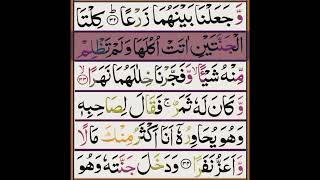 وَّجَعَلْنَا بَيْنَهُمَا زَرْعًا ﴿٣٢﴾ كِلْتَا
الْجَنَّتَيْنِ اٰتَتْ اُكُلَهَا وَلَمْ تَظْلِمْ
مِّنْهُ شَيْـًٔا ۙ وَّفَجَّرْنَا خِلٰلَهُمَا نَهَرًا ﴿٣٣﴾
وَّكَانَ لَهٗ ثَمَرٌ ۚ فَقَالَ لِصَاحِبِهٖ
وَهُوَ يُحَاوِرُهٗۤ اَنَا اَكْثَرُ مِنْكَ مَالًا
وَّاَعَزُّ نَفَرًا ﴿٣٤﴾ وَدَخَلَ جَنَّتَهٗ وَهُوَ